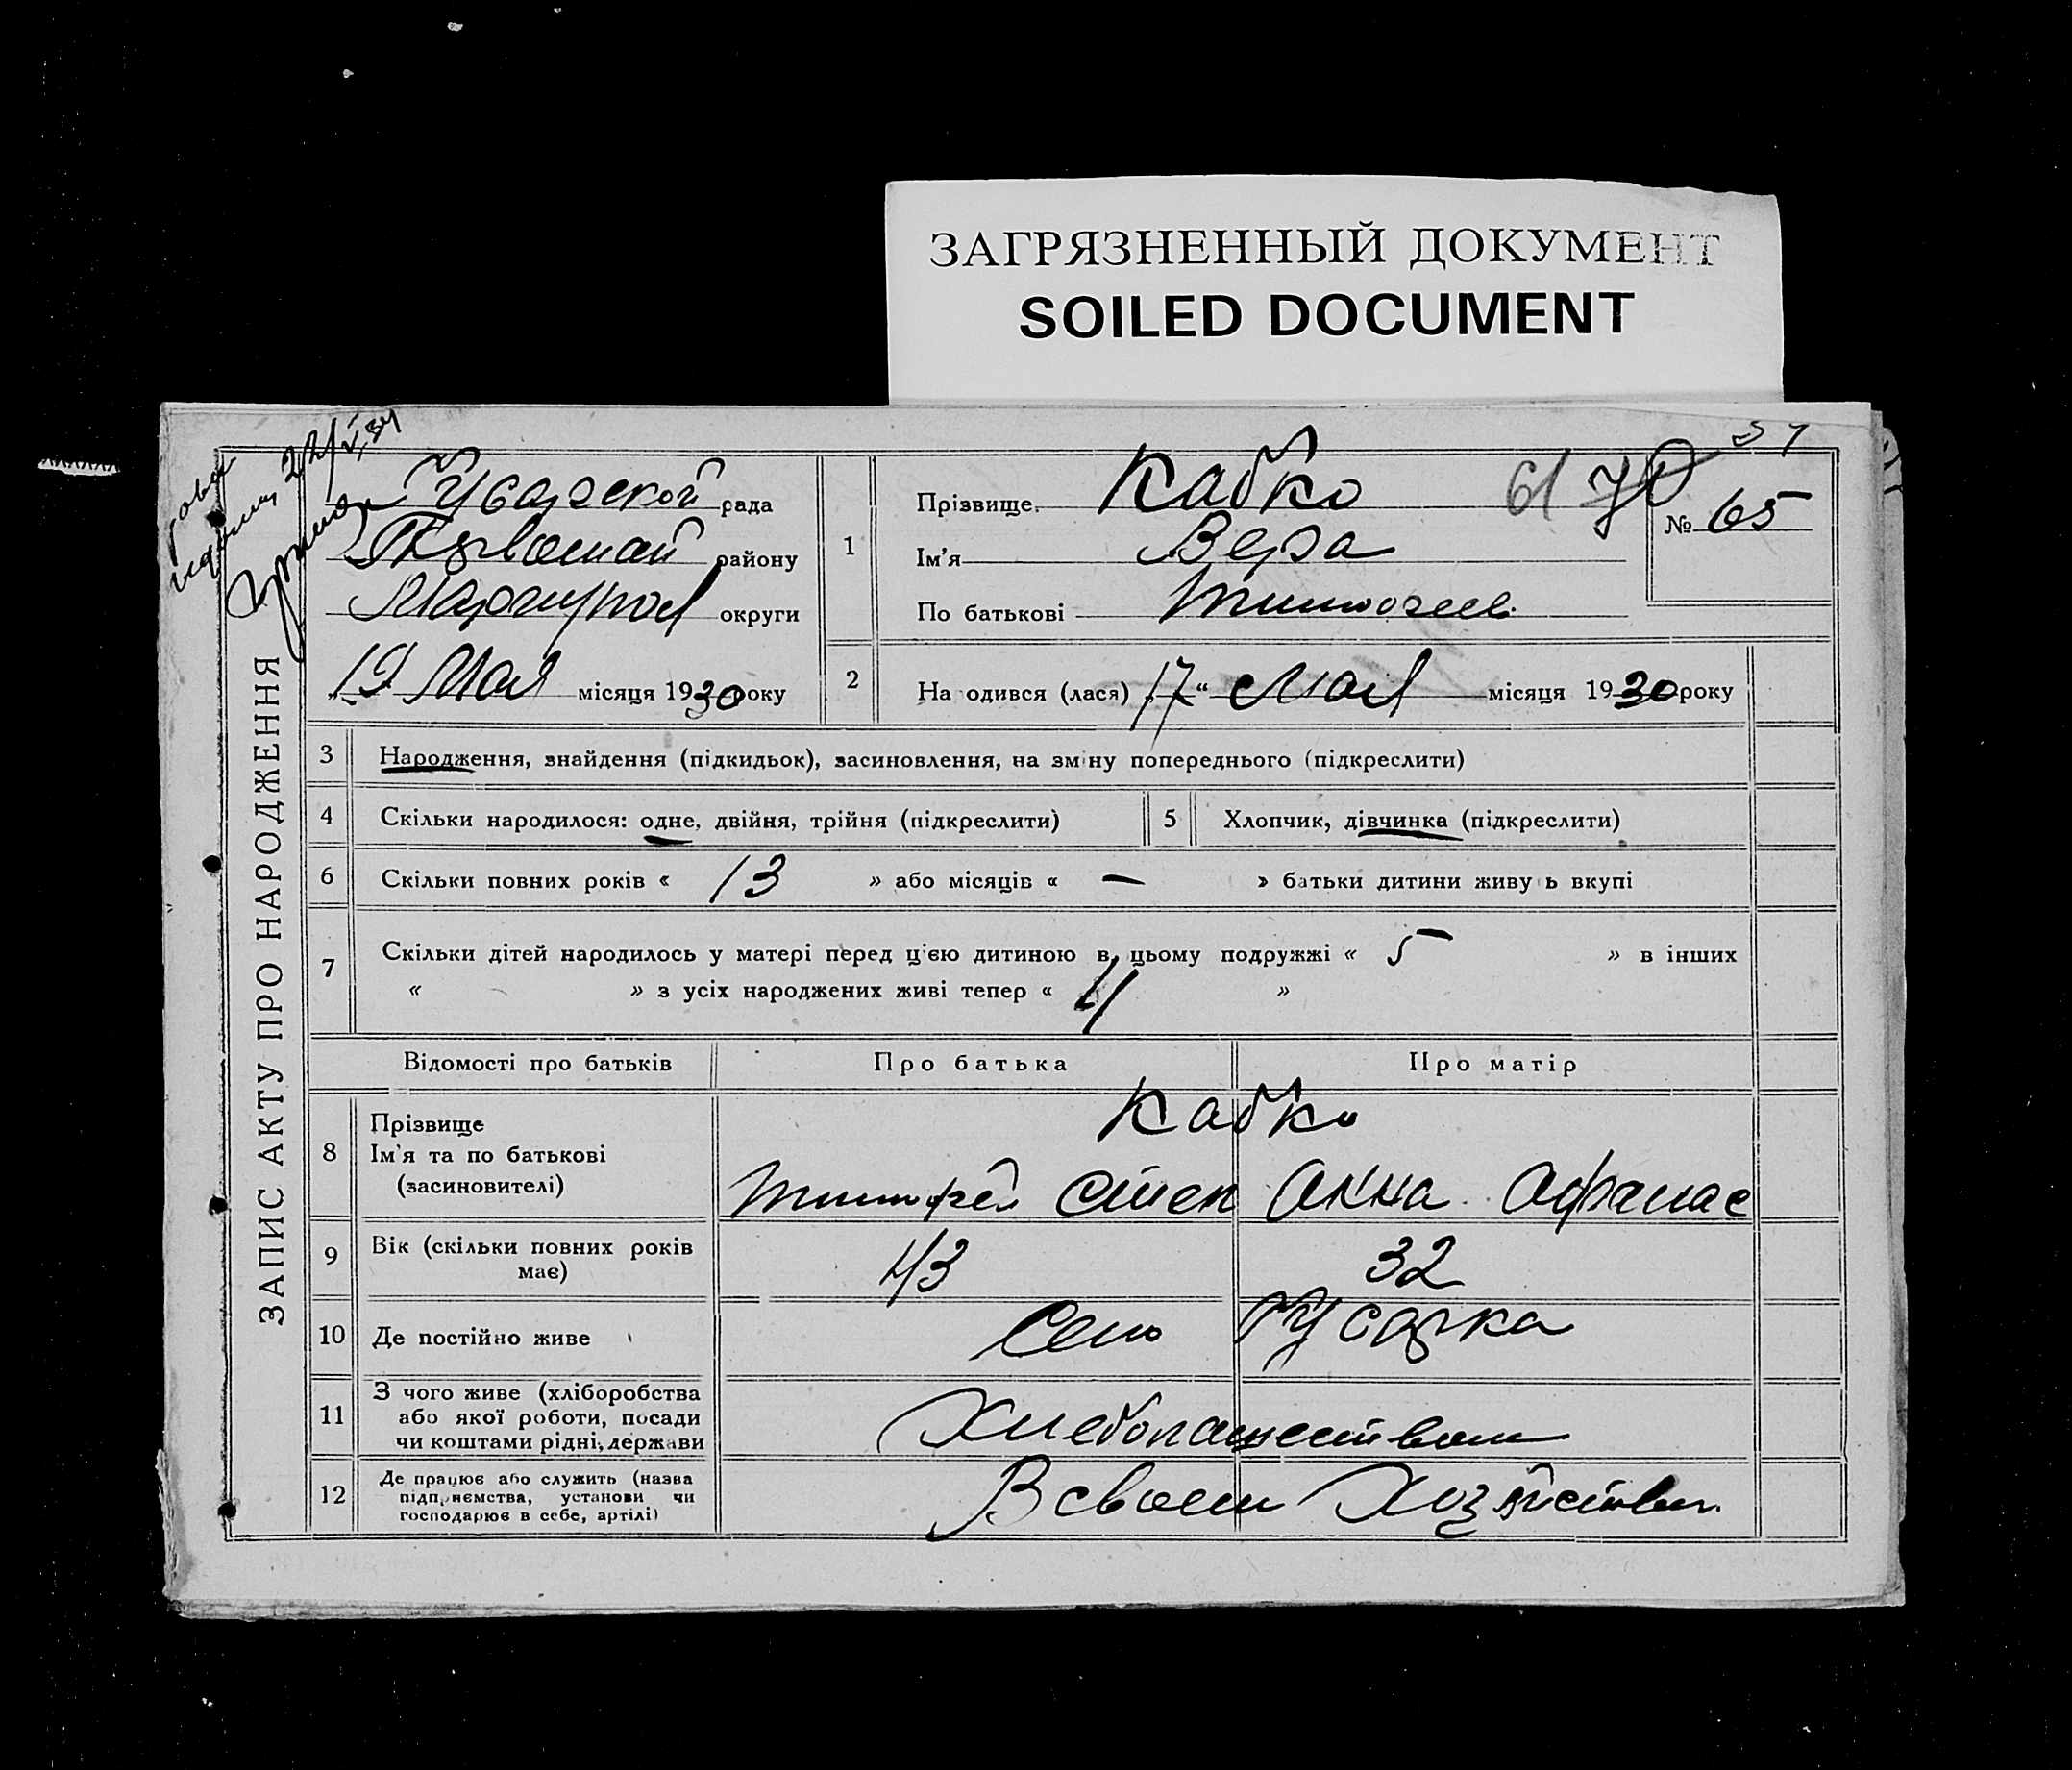 ЗАГРЯЗНЕННЫЙ ДОКУМЕНТ
SOILED DOCUMENT
рада
району
Мариупол округи
19 Мая місяця 1930 року
Прізвище. Кабко
61 70
№ 65
1
Ім'я Вера
По батькові Тимофеев.
2
На одився (лася) „17“ Мая місяця 1930 року
ЗАПИС АКТУ ПРО НАРОДЖЕННЯ
3 Народження, знайдення (підкидьок), засиновлення, на зміну попереднього (підкреслити)
4 Скільки народилося: одне, двійня, трійня (підкреслити)
5 Хлопчик, дівчинка (підкреслити)
6 Скільки повних років « 13 » або місяців « — » батьки дитини живу ь вкупі
7 Скільки дітей народилось у матері перед ц'єю дитиною в цьому подружжі « 5 » в інших
« » з усіх народжених живі тепер « 4 »
Відомості про батьків Про батька Про матір
8 Прізвище
Ім'я та по батькові
(засиновителі)
Кабко
Тимофей Степ Анна Афанас
9 Вік (скільки повних років
має)
43 32
10 Де постійно живе Село Гусарка
11 З чого живе (хліборобства
або якої роботи, посади
чи коштами рідні, держави
Хлебопашеством
12 Де працює або служить (назва
підприємства, установи чи
господарює в себе, артілі)
В своем Хозяйстве.